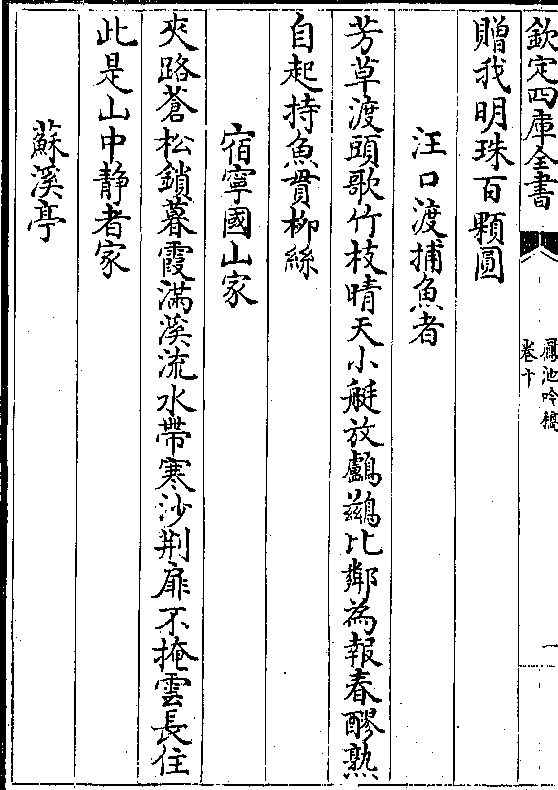 欽定四庫全書
鳳池吟稿
卷十
一
贈我明珠百顆圓
汪口渡捕魚者
芳草渡頭歌竹枝晴天小艇放鸕鷀比鄰為報春醪熟
自起持魚貫柳絲
宿寧國山家
夾路蒼松鎖暮霞滿溪流水帶寒沙荆扉不掩雲長住
此是山中静者家
蘇溪亭